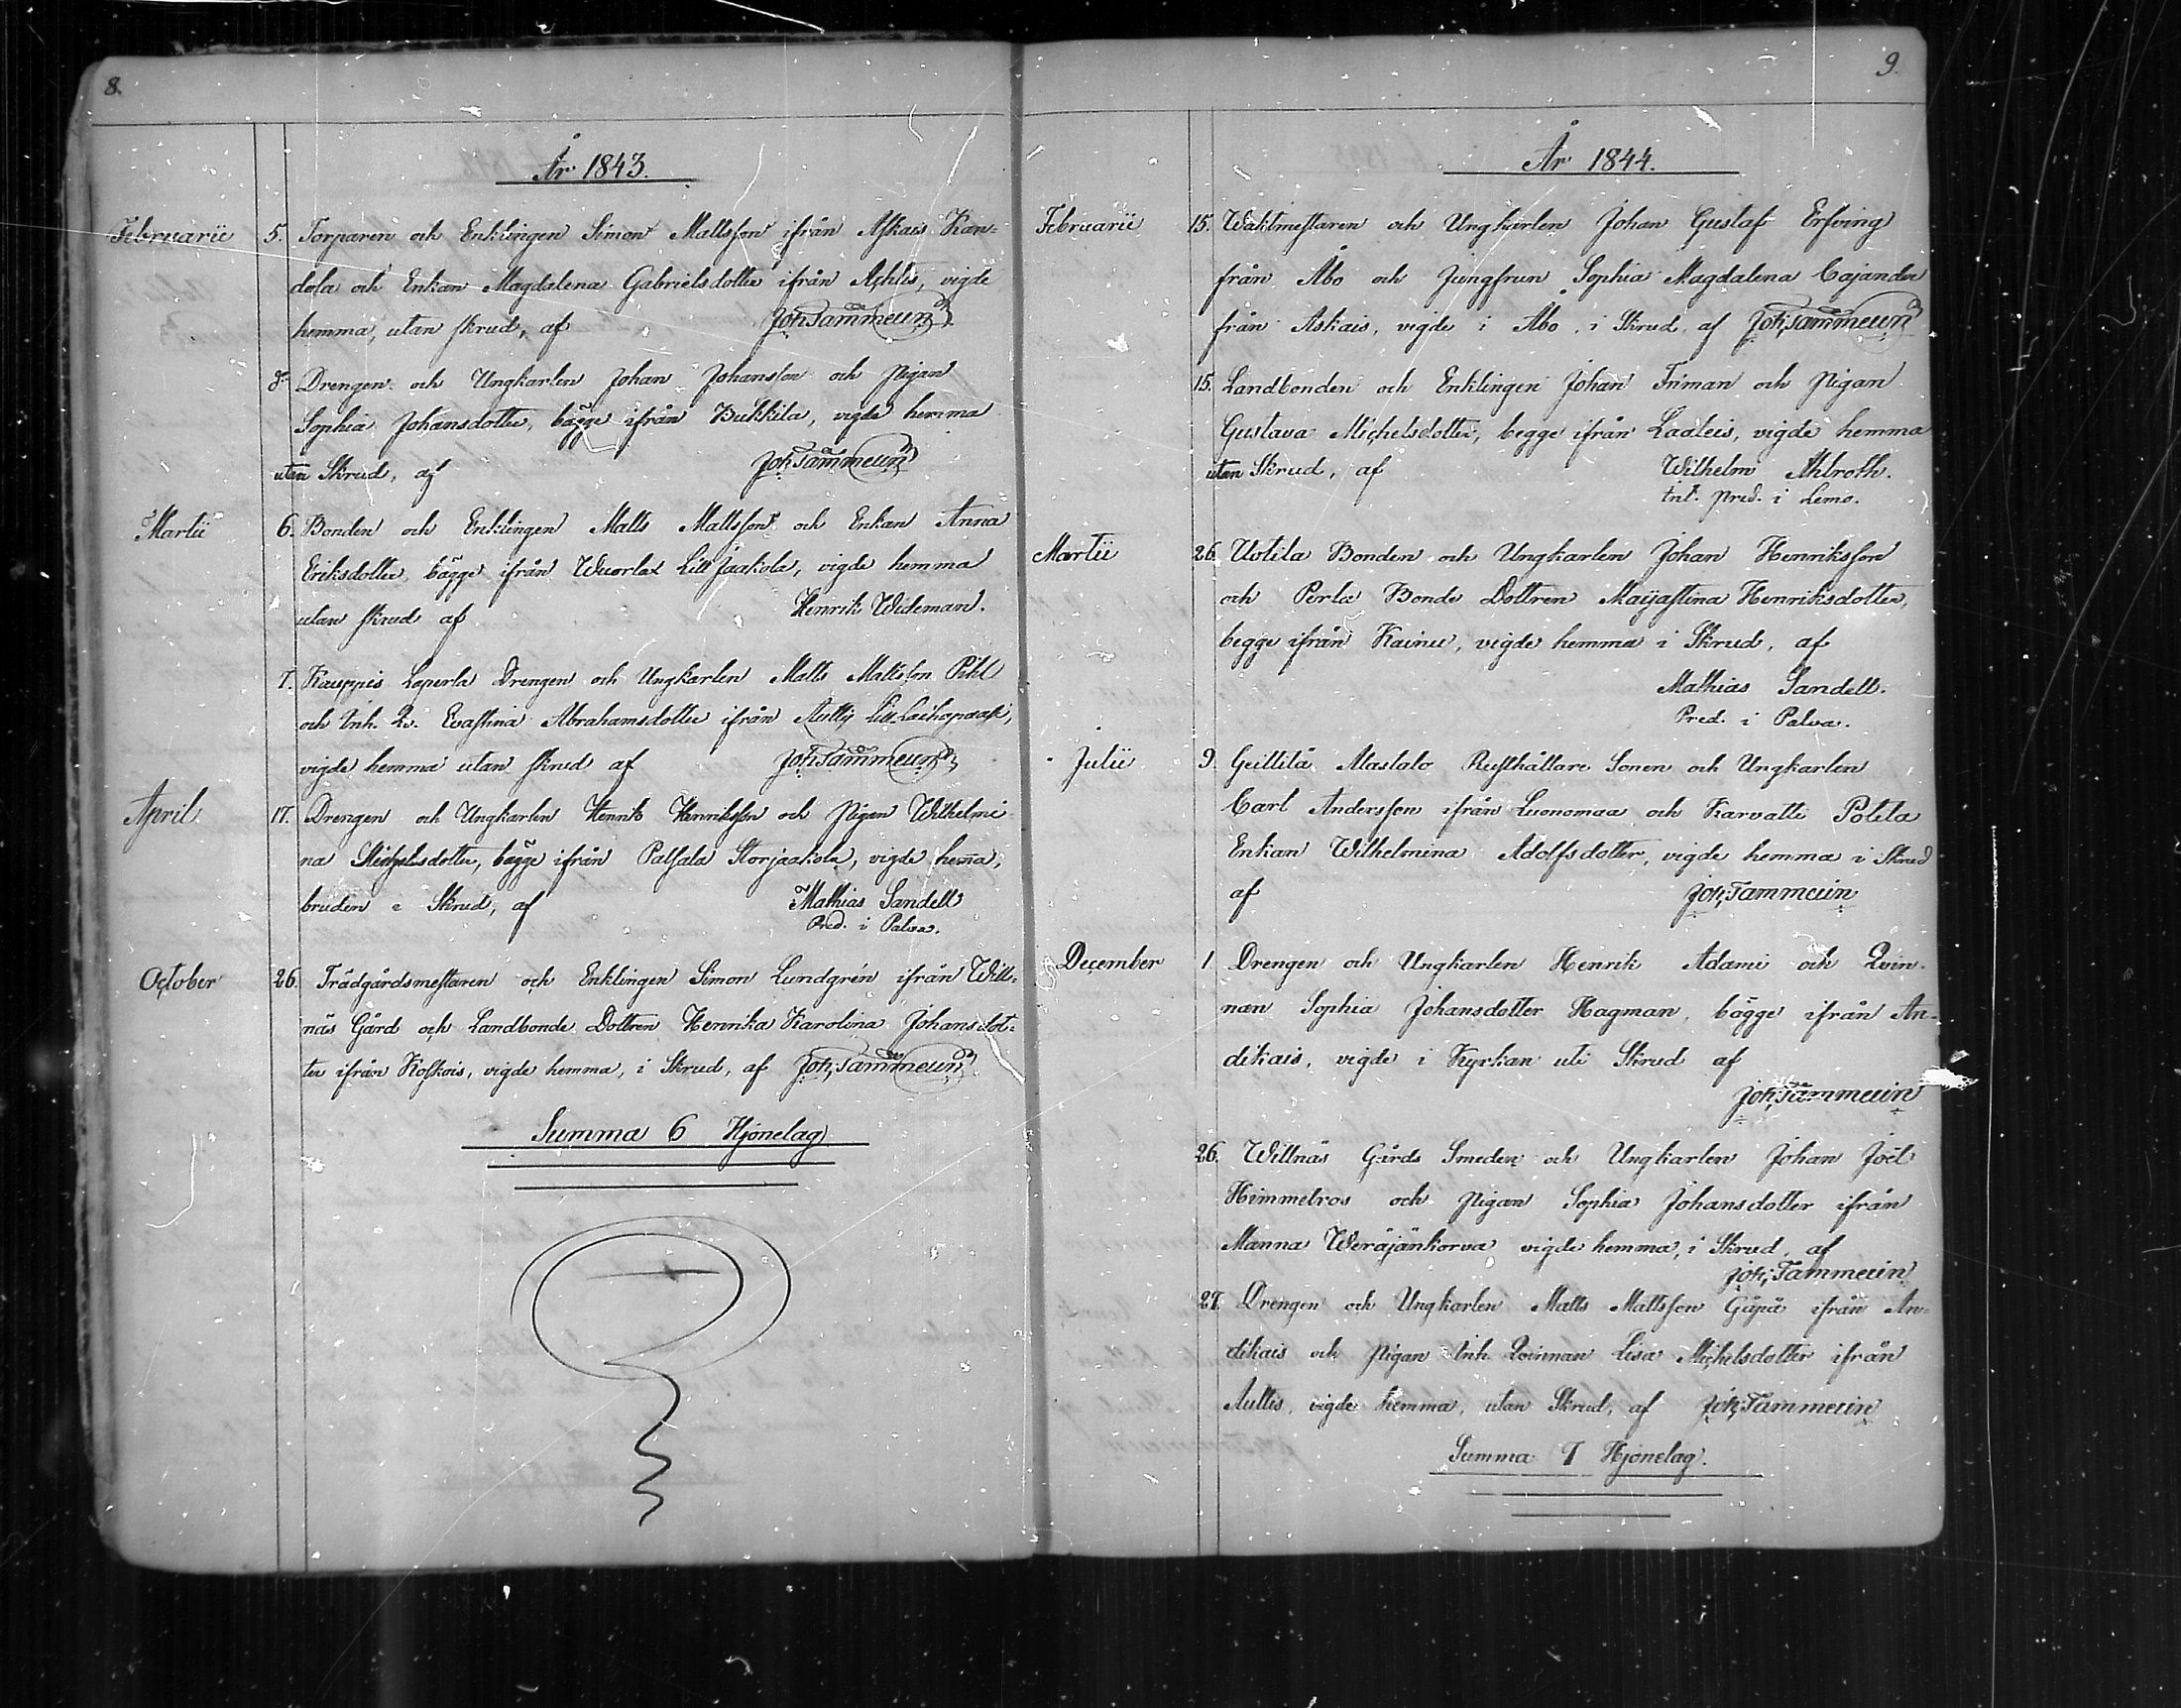 8.
År 1843.
Februarii 5. Torparen och Enklingen Simon Mattsson ifrån Askais Kan-
dola och Enkan Magdalena Gabrielsdotter ifrån Achtis, vigde
hemma, utan skrud, af Joh; Tammelin
Drengen och Ungkarlen Johan Johansson och Pigan
Sophia Johansdotter, bägge ifrån Bukkila, vigde hemma
utan Skrud, af Joh; Tammelin
Martii 6. Bonden och Enklingen Matts Mattsson och Enkan Anna
Eriksdotter, bägge ifrån Wuorlax Lill Jaakola, vigde hemma
utan skrud af Henrik Wideman.
7. Kauppis Laperla Drengen och Ungkarlen Matts Mattsson Pihl
och Inh. Qv. Evastina Abrahamsdotter ifrån Autty Lill-Laihopaasi,
vigde hemma utan skrud af Joh; Tammelin
April 17. Drengen och Ungkarlen Henrik Henriksson och Pigan Wilhelmi-
na Michelsdotter, bägge ifrån Palsala Storjaakola, vigde hem̄a,
bruden i Skrud, af Mathias Sandell
Pred. i Palva.
October 26. Trädgårdsmestaren och Enklingen Simon Lundgrén ifrån Will-
näs Gård och Landbonde Dottren Henrika Karolina Johansdot-
ter ifrån Koskois, vigde hemma, i Skrud, af Joh; Tammelin
Summa 6 Hjonelag
9.
År 1844.
Februarii 15. Waktmestaren och Ungkarlen Johan Gustaf Erfving
från Åbo och Jungfrun Sophia Magdalena Cajander
från Askais, vigde i Åbo, i Skrud, af Joh; Tammelin
15. Landbonden och Enklingen Johan Friman och Pigan
Gustava Michelsdotter, begge ifrån Ladleis, vigde hemma
utan Skrud, af Wilhelm Ahlroth.
tnt. Pred. i Lemo.
Martii 26. Uotila Bonden och Ungkarlen Johan Henriksson
och Perla Bonde Dottren Maijastina Henriksdotter,
begge ifrån Kainu, vigde hemma i Skrud, af
Mathias Sandell.
Pred. i Palva.
Julii 9. Geittilä Alastalo Rusthållare Sonen och Ungkarlen
Carl Andersson ifrån Luonomaa och Karvatti Polila
Enkan Wilhelmina Adolfsdotter, vigde hemma i Skrud
af Joh; Tammelin
December 1 Drengen och Ungkarlen Henrik Adami och Qvin-
nan Sophia Johansdotter Hagman, bägge ifrån An-
dikais, vigde i Kyrkan uti Skrud af
Joh; Tammelin
26. Willnäs Gårds Smeden och Ungkarlen Johan Joël
Himmelros och Pigan Sophia Johansdotter ifrån
Manna Weräjänkorva vigde hemma, i Skrud, af
Joh; Tammelin
27. Drengen och Ungkarlen Matts Mattsson Gäpä ifrån An-
dikais och Pigan Inh. Qvinnan Lisa Michelsdotter ifrån
Auttis, vigde hemma, utan Skrud, af Joh; Tammelin
Summa 7 Hjonelag.